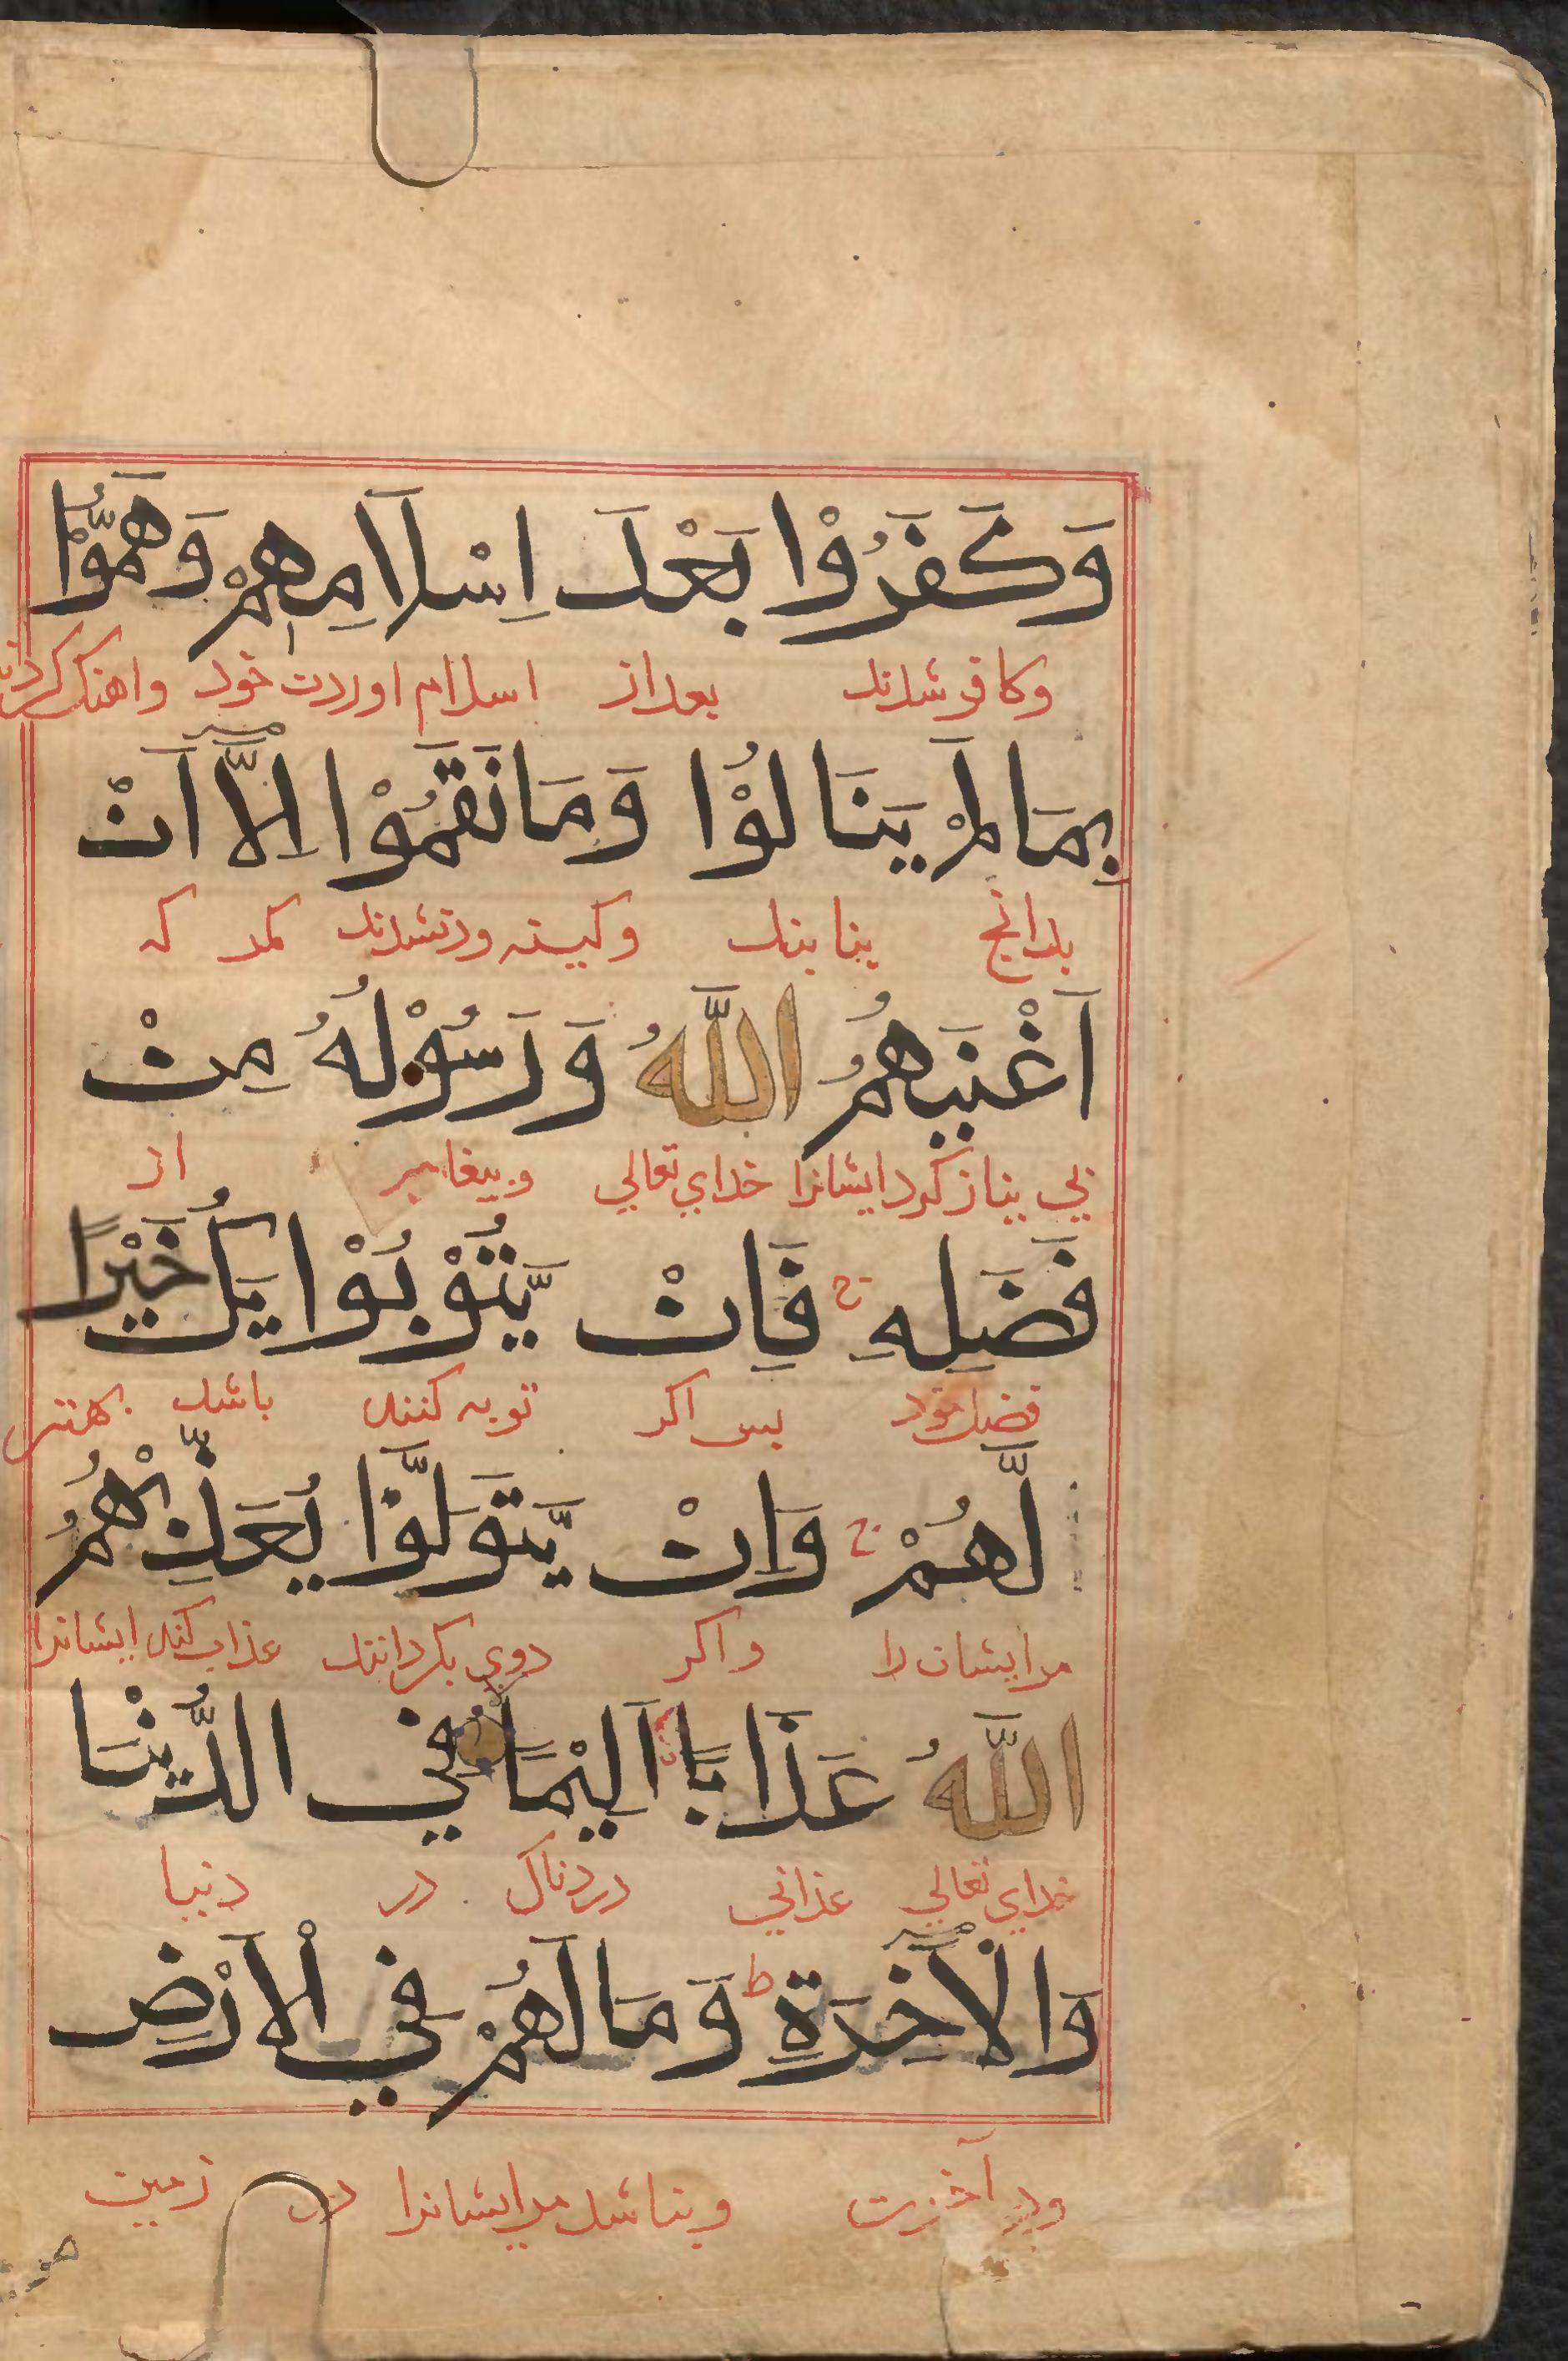 وَكَفَرُوْا بَعْدَ اِسْلَامِهِمْ وَهَمُّوْا
وكافر شدند بعد از اسلام اوردن خود واهنك كردند
بِمَا لَمْ يَنَالُوْا وَمَا نَقَمُوْا اِلَّا اَنْ
بدانج نيابند وكينه ور نشدند مكر كه
اَغْنٰىهُمُ اللّٰهُ وَرَسُوْلُهُ مِنْ
بي نياز كرد ايشانرا خداي تعالي وبيغامبر از
فَضْلِهِ ج فَاِنْ يَّتُوْبُوْا يَكُ خَيْرًا
فضل خود بس اكر توبه كنند باشد بهتر
لَّهُمْ ج وَاِنْ يَّتَوَلَّوْا يُعَذِّبْهُمُ
مر ايشان را واكر روي بكردانند عذاب كند ايشانرا
اللّٰهُ عَذَابًا اَلِيْمًا فِي الدُّنْيَا
خداي تعالي عذابي دردناك در دنيا
وَالْاٰخِرَةِ ط وَمَا لَهُمْ فِي الْاَرْضِ
ودر آخرت ونباشد مر ايشانرا در زمين